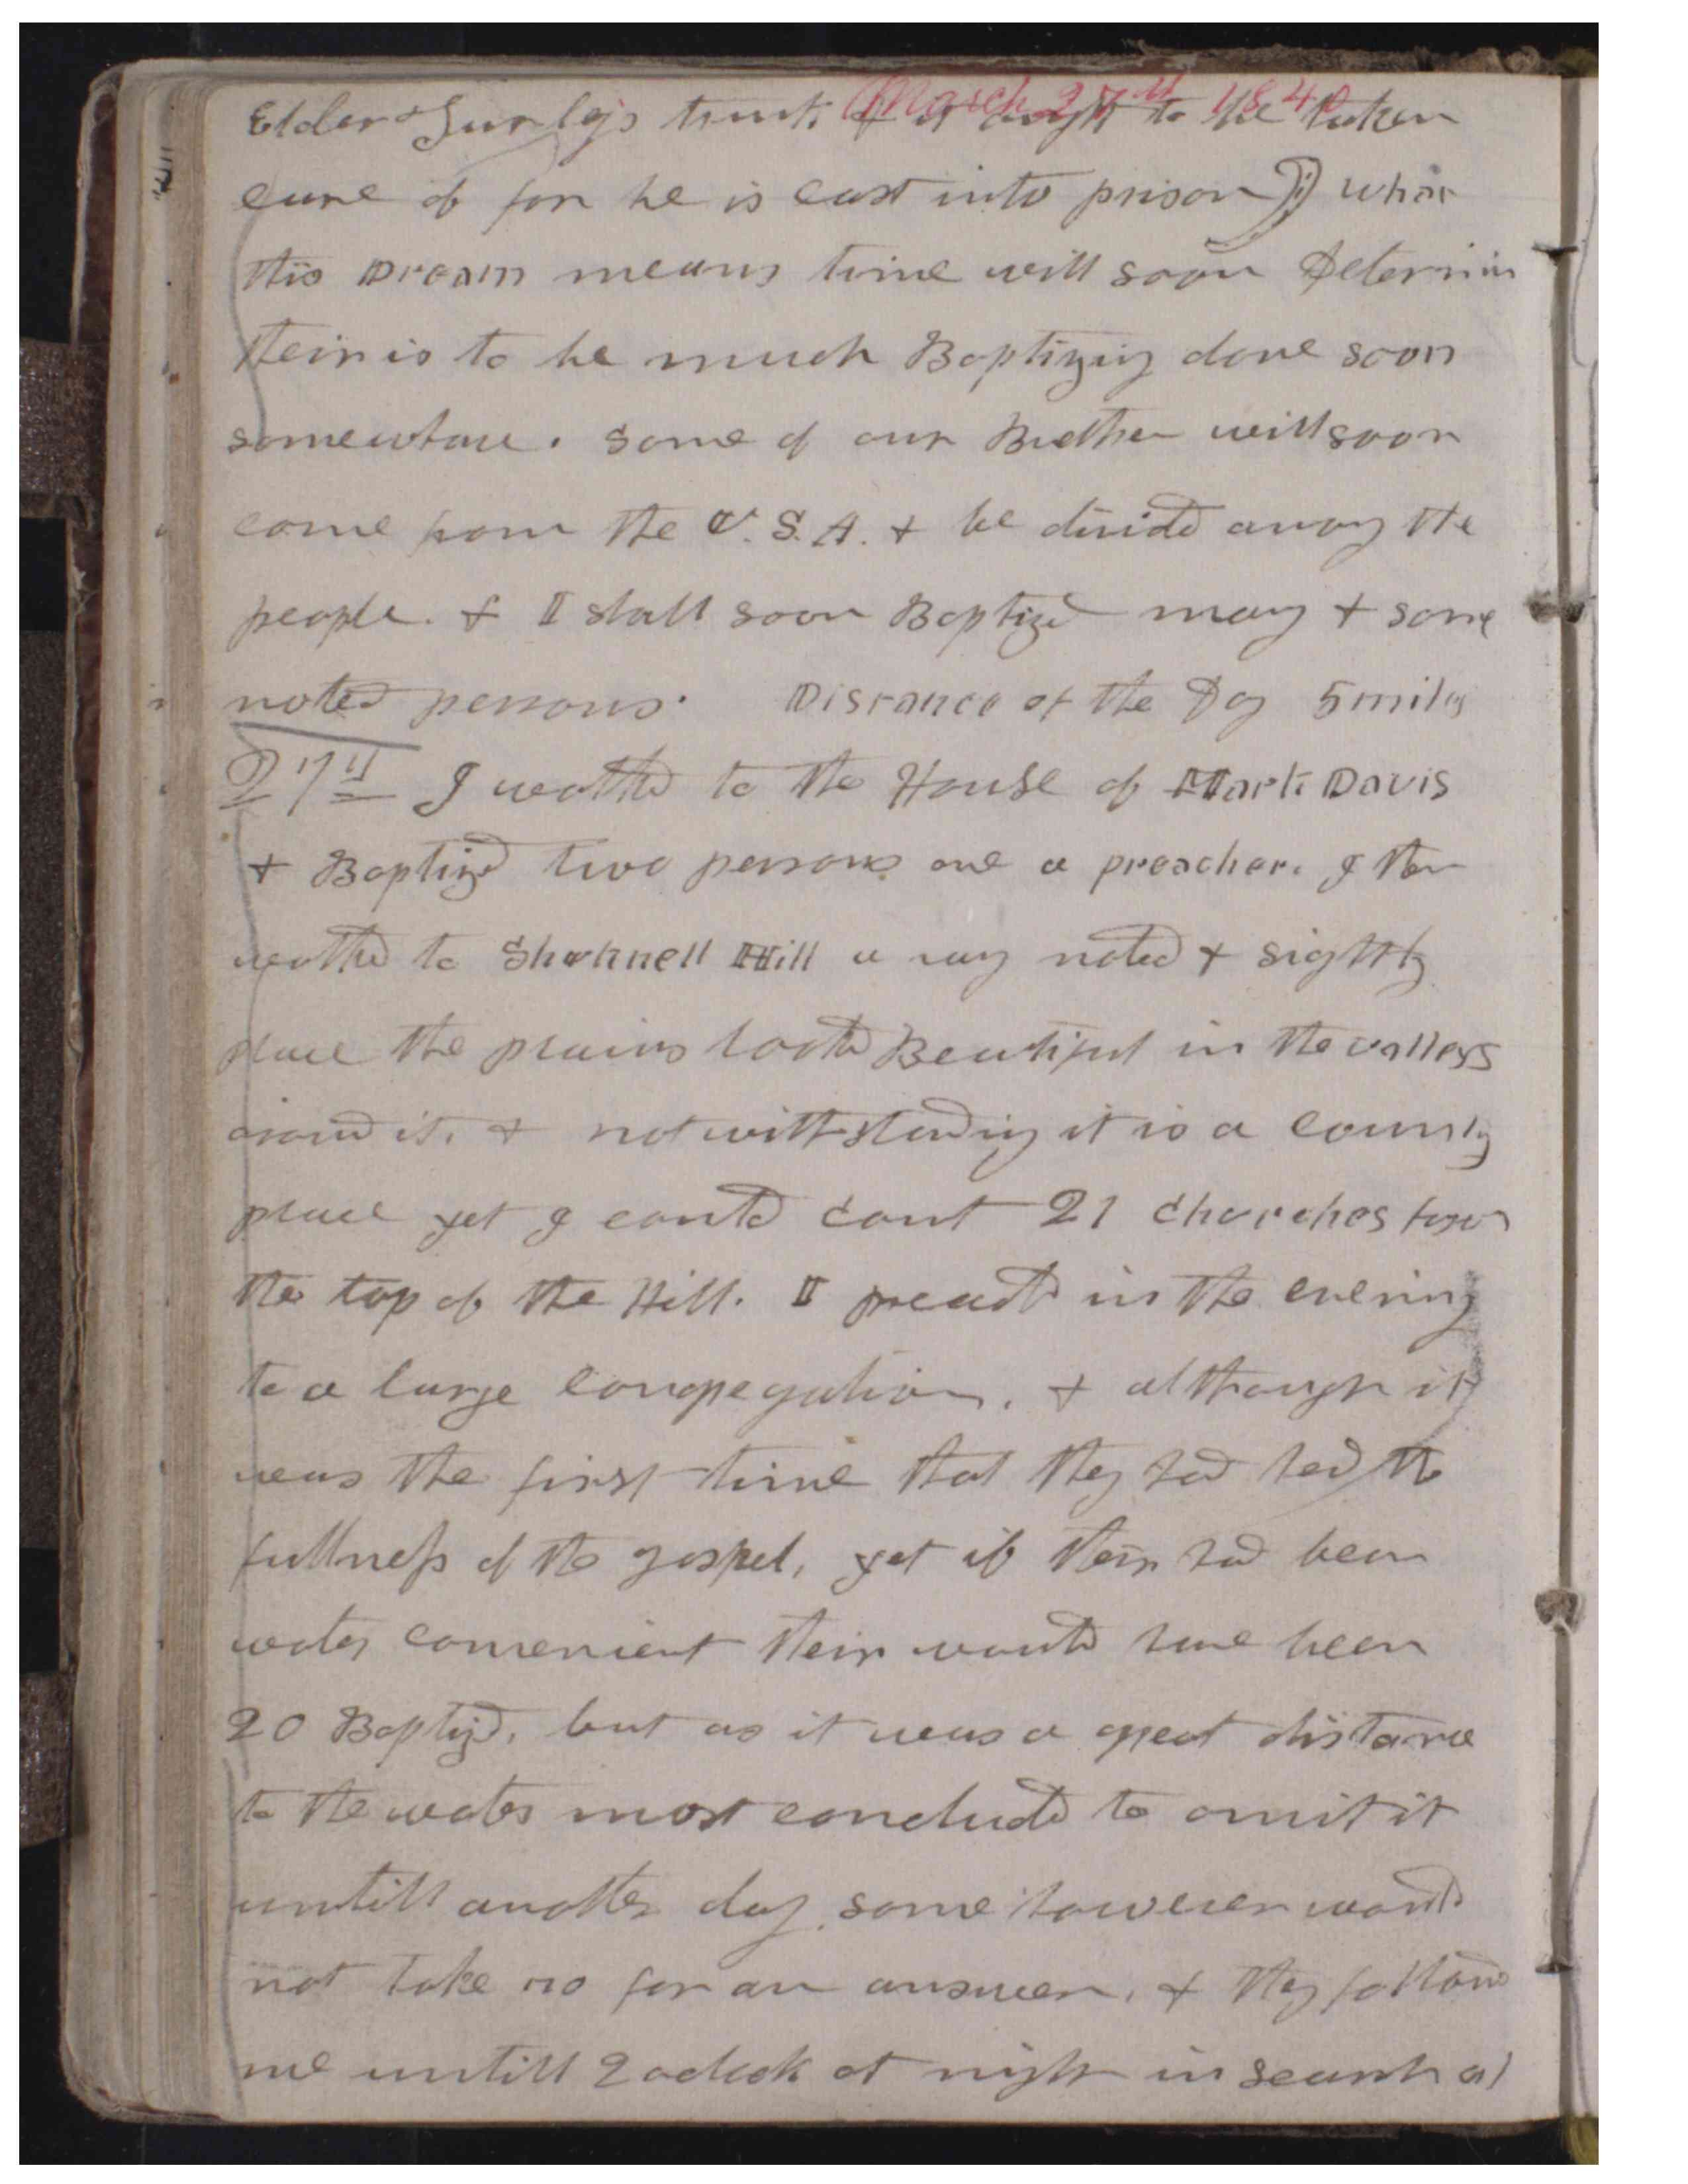 March 27th 1840
Elder Turley's trunk & it ought to be taken
care of for he is cast into prison)) what
this Dream means time will soon Determin
their is to be much Baptizing done soon
somewhare. some of our Brethen will soon
come from the U.S.A. & be divided among the
people. & I shall soon Baptized many & some
noted persons. Distance of the Day 5 miles
27th I walked to the House of Mark Davis
& Baptized two persons one a preacher. I then
walked to Shucknell Hill a very noted & sightly
place the plains looked Beautiful in the valleys
around it. & notwithstanding it is a country
place yet I could count 21 churches from
the top of the Hill. I preached in the evening
to a large congregation. & although it
was the first time that they had had the
fullness of the gospel, yet if their had been
water convenient their would have been
20 Baptized. but as it was a great distance
to the water most concluded to omit it
untill another day. some however would
not take no for an answer. & they followed
me untill 2 oclock at night in search of